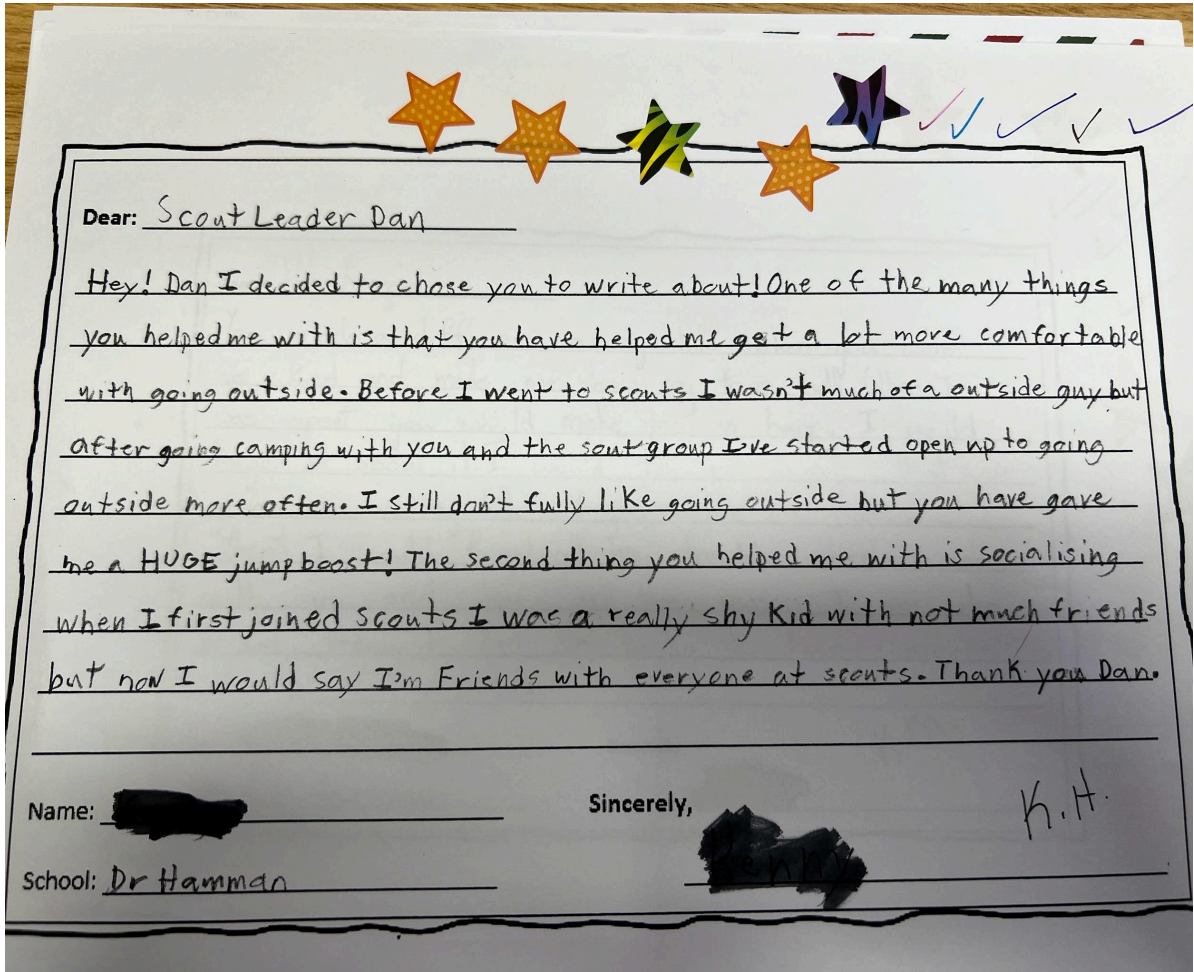 Dear: Scout Leader Dan
Hey! Dan I decided to chose you to write about! One of the many things
you helped me with is that you have helped me get a lot more comfortable
with going outside. Before I went to scouts I wasn't much of a outside guy but
after going camping with you and the sout group I've started open up to going
outside more often. I still don't fully like going outside but you have gave
me a HUGE jump boost! The second thing you helped me with is socialising
when I first joined scouts I was a really shy kid with not much friends
but now I would say I'm Friends with everyone at scouts. Thank you Dan.
Name:
Sincerely,
K.H.
School: Dr Hamman